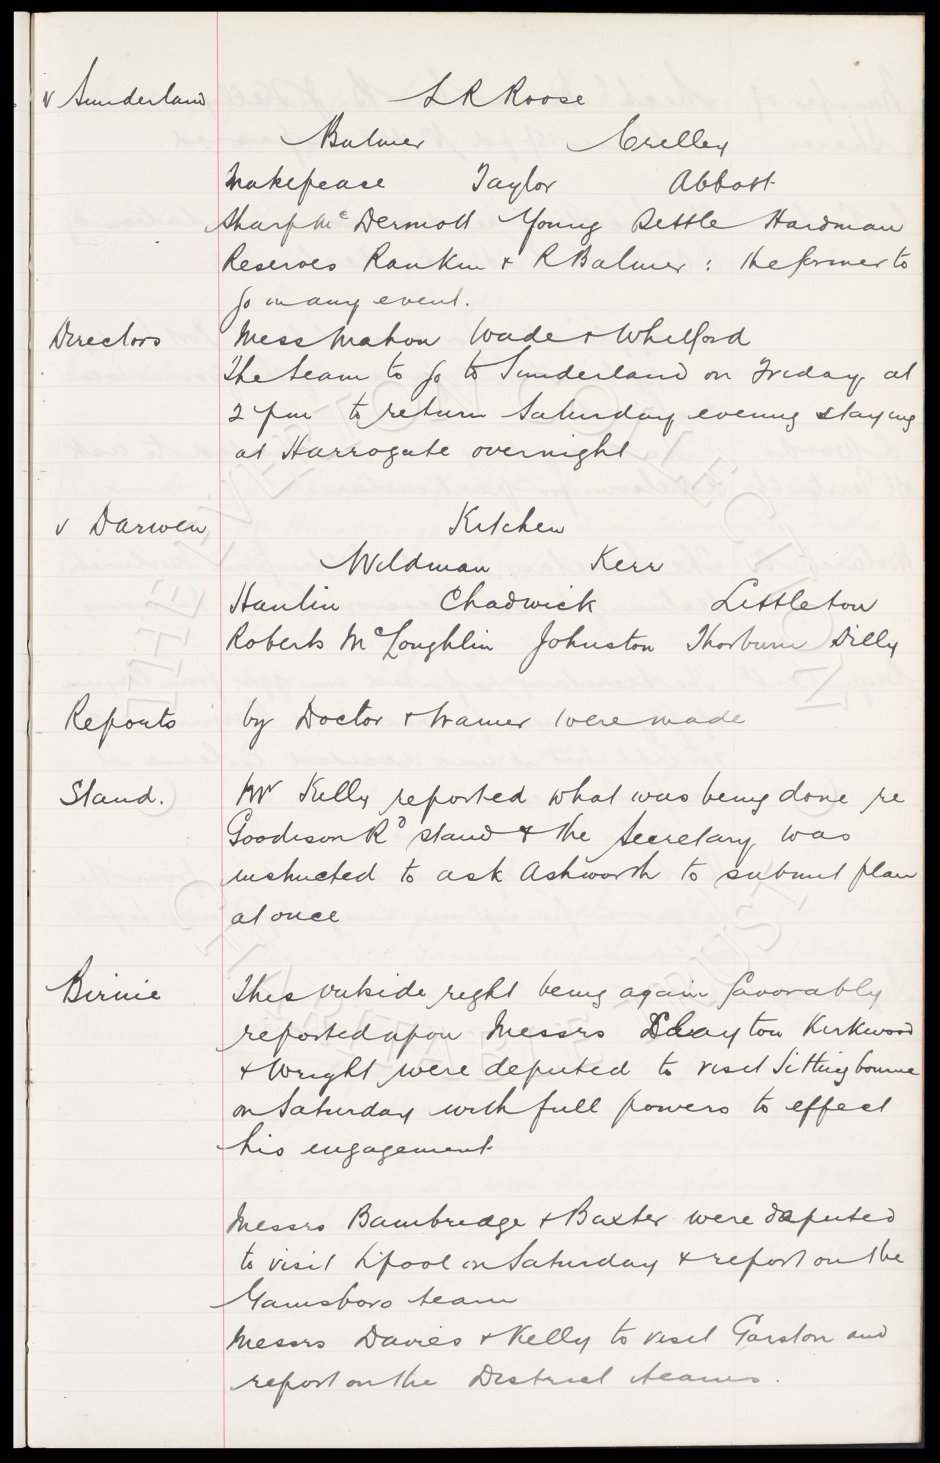 v Sunderland L R Roose
Balmer Crelley
Makepeace Taylor Abbott
Sharp McDermott Young Settle Hardman
Reserves Rankin & R Balmer : the former to
go in any event.
Directors Mess Mahon Wade & Whitford
The team to go to Sunderland on Friday at
2 pm to return Saturday evening staying
at Harrogate overnight
v Darwen Kitchen
Wildman Kerr
Hanlin Chadwick Littleton
Roberts McLoughlin Johnston Thorburn Dilly
Reports by Doctor & trainer were made
Stand. Mr Kelly reported what was being done re
Goodison Rd stand & the Secretary was
instructed to ask Ashworth to submit plan
at once
Birnie This outside right being again favorably
reported upon Messrs Clayton Kirkwood
& Wright were deputed to visit Sittingbourne
on Saturday with full powers to effect
his engagement
Messrs Bainbridge & Baxter were deputed
to visit L'pool on Saturday & report on the
Gainsboro team
Messrs Davies & Kelly to visit Garston and
report on the District teams.
THE EVERTON COLLECTION
CHARITABLE TRUST